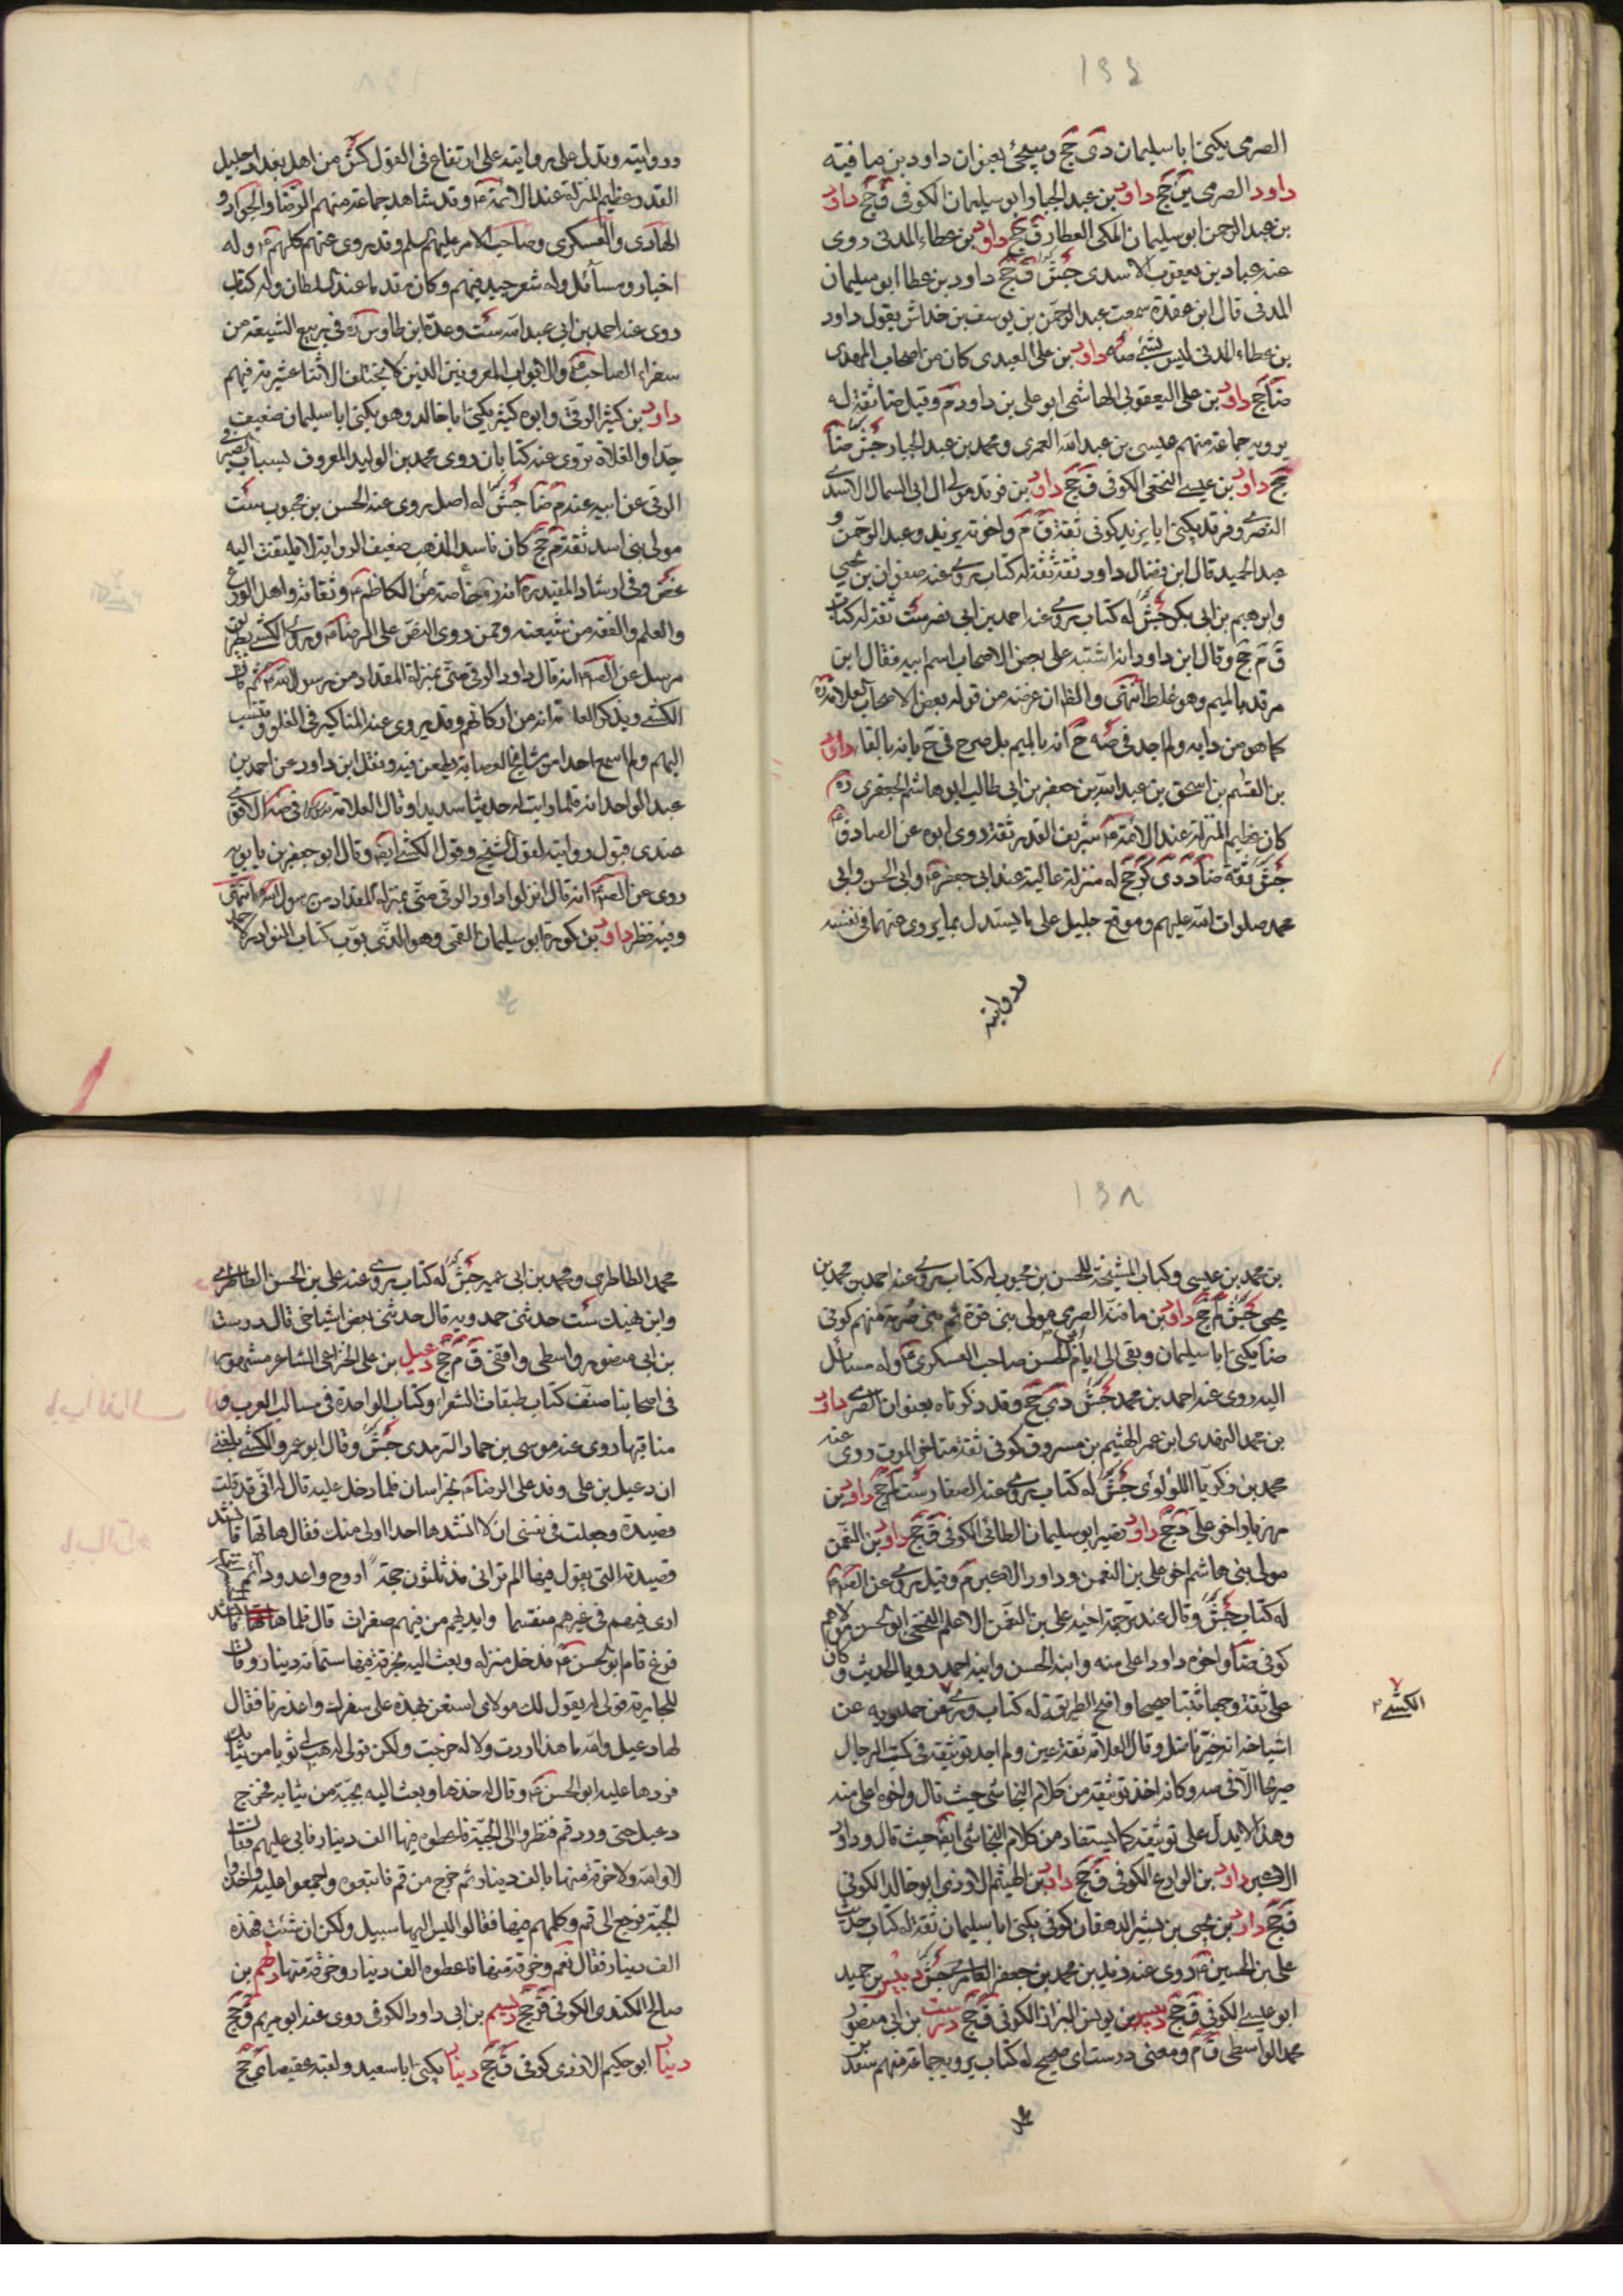 الصرمى يكنى ابا سليمان دى جخ وسيجئ بعنوان داود بن مافنة
داود الصرمى ين جخ داود بن عبد الجبار ابو سليمان الكوفى ق جخ داود
بن عبد الرحمن ابو سليمان المكى العطار ق جخ داود بن عطاء المدنى روى
عنه عباد بن يعقوب الاسدى جش ق جخ داود بن عطا ابو سليمان
المدنى قال ابن عقدة سمعت عبد الرحمن بن يوسف بن خداش يقول داود
بن عطاء المدنى ليس بشئ صه داود بن على العبدى كان من اصحاب المهدى
ضا جخ داود بن على اليعقوبى الهاشمى ابو على بن داود م وقيل ضا ثقة له
يرويه جماعة منهم عيسى بن عبد الله العمرى ومحمد بن عبد الجبار جش ضا
جخ داود بن عيسى النخعى الكوفى ق جخ داود بن فرقد مولى ال ابى السمال الاسدى
النصرى وفرقد يكنى ابا يزيد كوفى ثقة ق م واخوته يزيد وعبد الرحمن و
عبد الحميد قال ابن فضال داود ثقة ثقة له كتاب روى عنه صفوان بن يحيى
وابرهيم بن ابى بكر جش له كتاب روى عنه احمد بن ابى نصر ست ثقة له كتاب
ق م جخ وقال ابن داود انه اشتبه على بعض الاصحاب اسم ابيه فقال ابن
مرقد بالميم وهو غلط انتهى والظ ان غرضه من قوله بعض الاصحاب العلامة ره
كما هو من دابه ولم اجد فى صه ح انه بالميم بل صرح فى ح بانه بالفاء داود
بن القسم بن اسحق بن عبد الله بن جعفر بن ابى طالب ابو هاشم الجعفرى ره
كان عظيم المنزلة عند الائمة ع شريف القدر ثقة روى ابوه عن الصادق ع
جش ثقة ضا د دى كر جخ له منزلة عالية عند ابى جعفر ع وابى الحسن وابى
محمد صلوات الله عليهم وموقع جليل على ما يستدل بما يروى عنهما فى نفسه
وروايته
وروايته وتدل على روايته على ارتفاع فى القول كش من اهل بغداد جليل
القدر عظيم المنزلة عند الائمة ع وقد شاهد جماعة منهم الرضا والجواد و
الهادى والعسكرى وصاحب الامر عليهم السلم وقد روى عنهم كلهم ع وله
اخبار ومسائل وله شعر جيد فيهم وكان مقدما عند السلطان وله كتاب
روى عنه احمد بن ابى عبد الله ست وعده ابن طاوس ره فى ربيع الشيعة من
سفراء الصاحب ع والابواب المعروفين الذين لا يختلف الاثنا عشرية فيهم
داود بن كثير الرقى وابوه كثير يكنى ابا خالد وهو يكنى ابا سليمان ضعيف
جدا والغلاة تروى عنه كتابان روى محمد بن الوليد المعروف بشباب الصيرفى
الرقى عن ابيه عنه م ضا جش له اصل روى عنه الحسن بن محبوب ست
مولى بنى اسد ثقة م جخ كان فاسد المذهب ضعيف الرواية لا يلتفت اليه
غض وفى ارشاد المفيد ره انه من خاصة الكاظم ع وثقاته واهل الورع
والعلم والفقه من شيعته وممن روى النص على الرضا ع وروى الكشى بطريق
مرسل عن الص ع انه قال داود الرقى منى بمنزلة المقداد من رسول الله ص ثم قال
الكشى ويذكر الغلاة انه من اركانهم وقد يروى عنه المناكير فى الغلو وينسب
اليهم ولم اسمع احدا من مشايخ العصابة يطعن فيه ونقل ابن داود عن احمد بن
عبد الواحد انه قلما رايت له حديثا سديدا وقال العلامة فى صه الاقوى
عندى قبول روايته لقول الشيخ وقول الكشى ايض وقال ابو جعفر بن بابويه
روى عن الص ع انه قال انزلوا داود الرقى منى بمنزلة المقداد من رسول الله ص انتهى
وفيه نظر داود بن كورة ابو سليمان القمى وهو الذى بوب كتاب النوادر لاحمد
بن محمد بن عيسى وكتاب المشيخة للحسن بن محبوب له كتاب روى عنه احمد بن محمد بن
يحيى جش لم جخ داود بن مافنة الصرمى مولى بنى قرة ثم بنى صرمة منهم كوفى
ضا يكنى ابا سليمان وبقى الى ايام ابى الحسن صاحب العسكر ع وله مسائل
اليه روى عنه احمد بن محمد جش دى جخ وقد ذكرناه بعنوان الصرمى داود
بن محمد النهدى ابن عم الهثيم بن مسروق كوفى ثقة متاخر الموت روى عنه
محمد بن زكريا اللؤلؤى جش له كتاب روى عنه الصفار ست لم جخ داود بن
مهزيار اخو على د جخ داود بن نصير ابو سليمان الطائى الكوفى ق جخ داود بن النعمن
مولى بنى هاشم اخو على بن النعمن وداود الاكبر م وقيل روى عن الص ع
له كتاب جش وقال عند ترجمة اخيه على بن النعمن الاعلم النخعى ابو الحسن مولاهم
كوفى ضا واخوه داود اعلى منه وابنه الحسن وابنه احمد رويا الحديث وكان
على ثقة وجها ثبتا صحيحا واضح الطريقة له كتاب وروى كش عن حمدويه عن
اشياخه انه خير فاضل وقال العلامة ثقة عين ولم اجد توثيقه فى كتب الرجال
صريحا الا فى صه وكانه اخذ توثيقه من كلام النجاشى حيث قال واخوه اعلى منه
وهذا لا يدل على توثيقه كما يستفاد من كلام النجاشى ايض حيث قال وداود
الاكبر داود بن الوادع الكوفى ق جخ داود بن الهيثم الازدى ابو خالد الكوفى
ق جخ داود بن يحيى بن بشير الدهقان كوفى يكنى ابا سليمان ثقة له كتاب حديث
على بن الحسين ع روى عنه زيد بن محمد بن جعفر العامرى جش دبيس بن حميد
ابو عيسى الكوفى ق جخ دبيس بن يونس البزاز الكوفى ق جخ درست بن ابى منصور
محمد الواسطى ق م ومعنى درست اى صحيح له كتاب يرويه جماعة منهم سعد بن
محمد
الكشى
محمد الطاطرى ومحمد بن ابى عمير جش له كتاب روى عنه على بن الحسن الطاطرى
وابن نهيك ست حدثنى حمدويه قال حدثنى بعض اشياخى قال درست
بن ابى منصور واسطى واقفى ق م جخ دعبل بن على الخزاعى الشاعر مشهور
فى اصحابنا صنف كتاب طبقات الشعراء وكتاب الواحدة فى مثالب العرب و
مناقبها روى عنه موسى بن حماد اليزيدى جش وقال ابو عمرو الكشى بلغنى
ان دعبل بن على وفد على الرضا ع بخراسان فلما دخل عليه قال له انى قد قلت
قصيدة وجعلت فى نفسى ان لا انشدها احدا اولى منك فقال هاتها فانشد
قصيدته التى يقول فيها الم ترانى مذ ثلثون حجة اروح واغدو دائم الحسرات
ارى فيئهم فى غيرهم متقسما وايديهم من فيئهم صفرات قال فلما
فرغ قام ابو الحسن ع فدخل منزله وبعث اليه بخرقة فيها ستمائة دينار وقال
للجارية قولى له يقول لك مولاى استعن بهذه على سفرك واعذرنا فقال
لها دعبل والله ما هذا اردت ولا له خرجت ولكن قولى له هب لى ثوبا من ثيابك
فردها عليه ابو الحسن ع وقال له خذها وبعث اليه بجبة من ثيابه فخرج
دعبل حتى ورد قم فنظروا الى الجبة فاعطوه فيها الف دينار فابى عليهم فقال
لا والله ولا خرقة منها بالف دينار ثم خرج من قم فاتبعوه واجمعوا عليه واخذوا
الجبة فرجع الى قم وكلمهم فيها فقالوا ليس اليها سبيل ولكن ان شئت فهذه
الف دينار فقال نعم وخرقة منها فاعطوه الف دينار وخرقة منها دلهم بن
صالح الكندى الكوفى ق جخ ديسم بن ابى داود الكوفى روى عنه ابو مريم ق جخ
دينار ابو حكيم الازدى كوفى ق جخ دينار يكنى ابا سعيد ولقبه عقيصا ى جخ